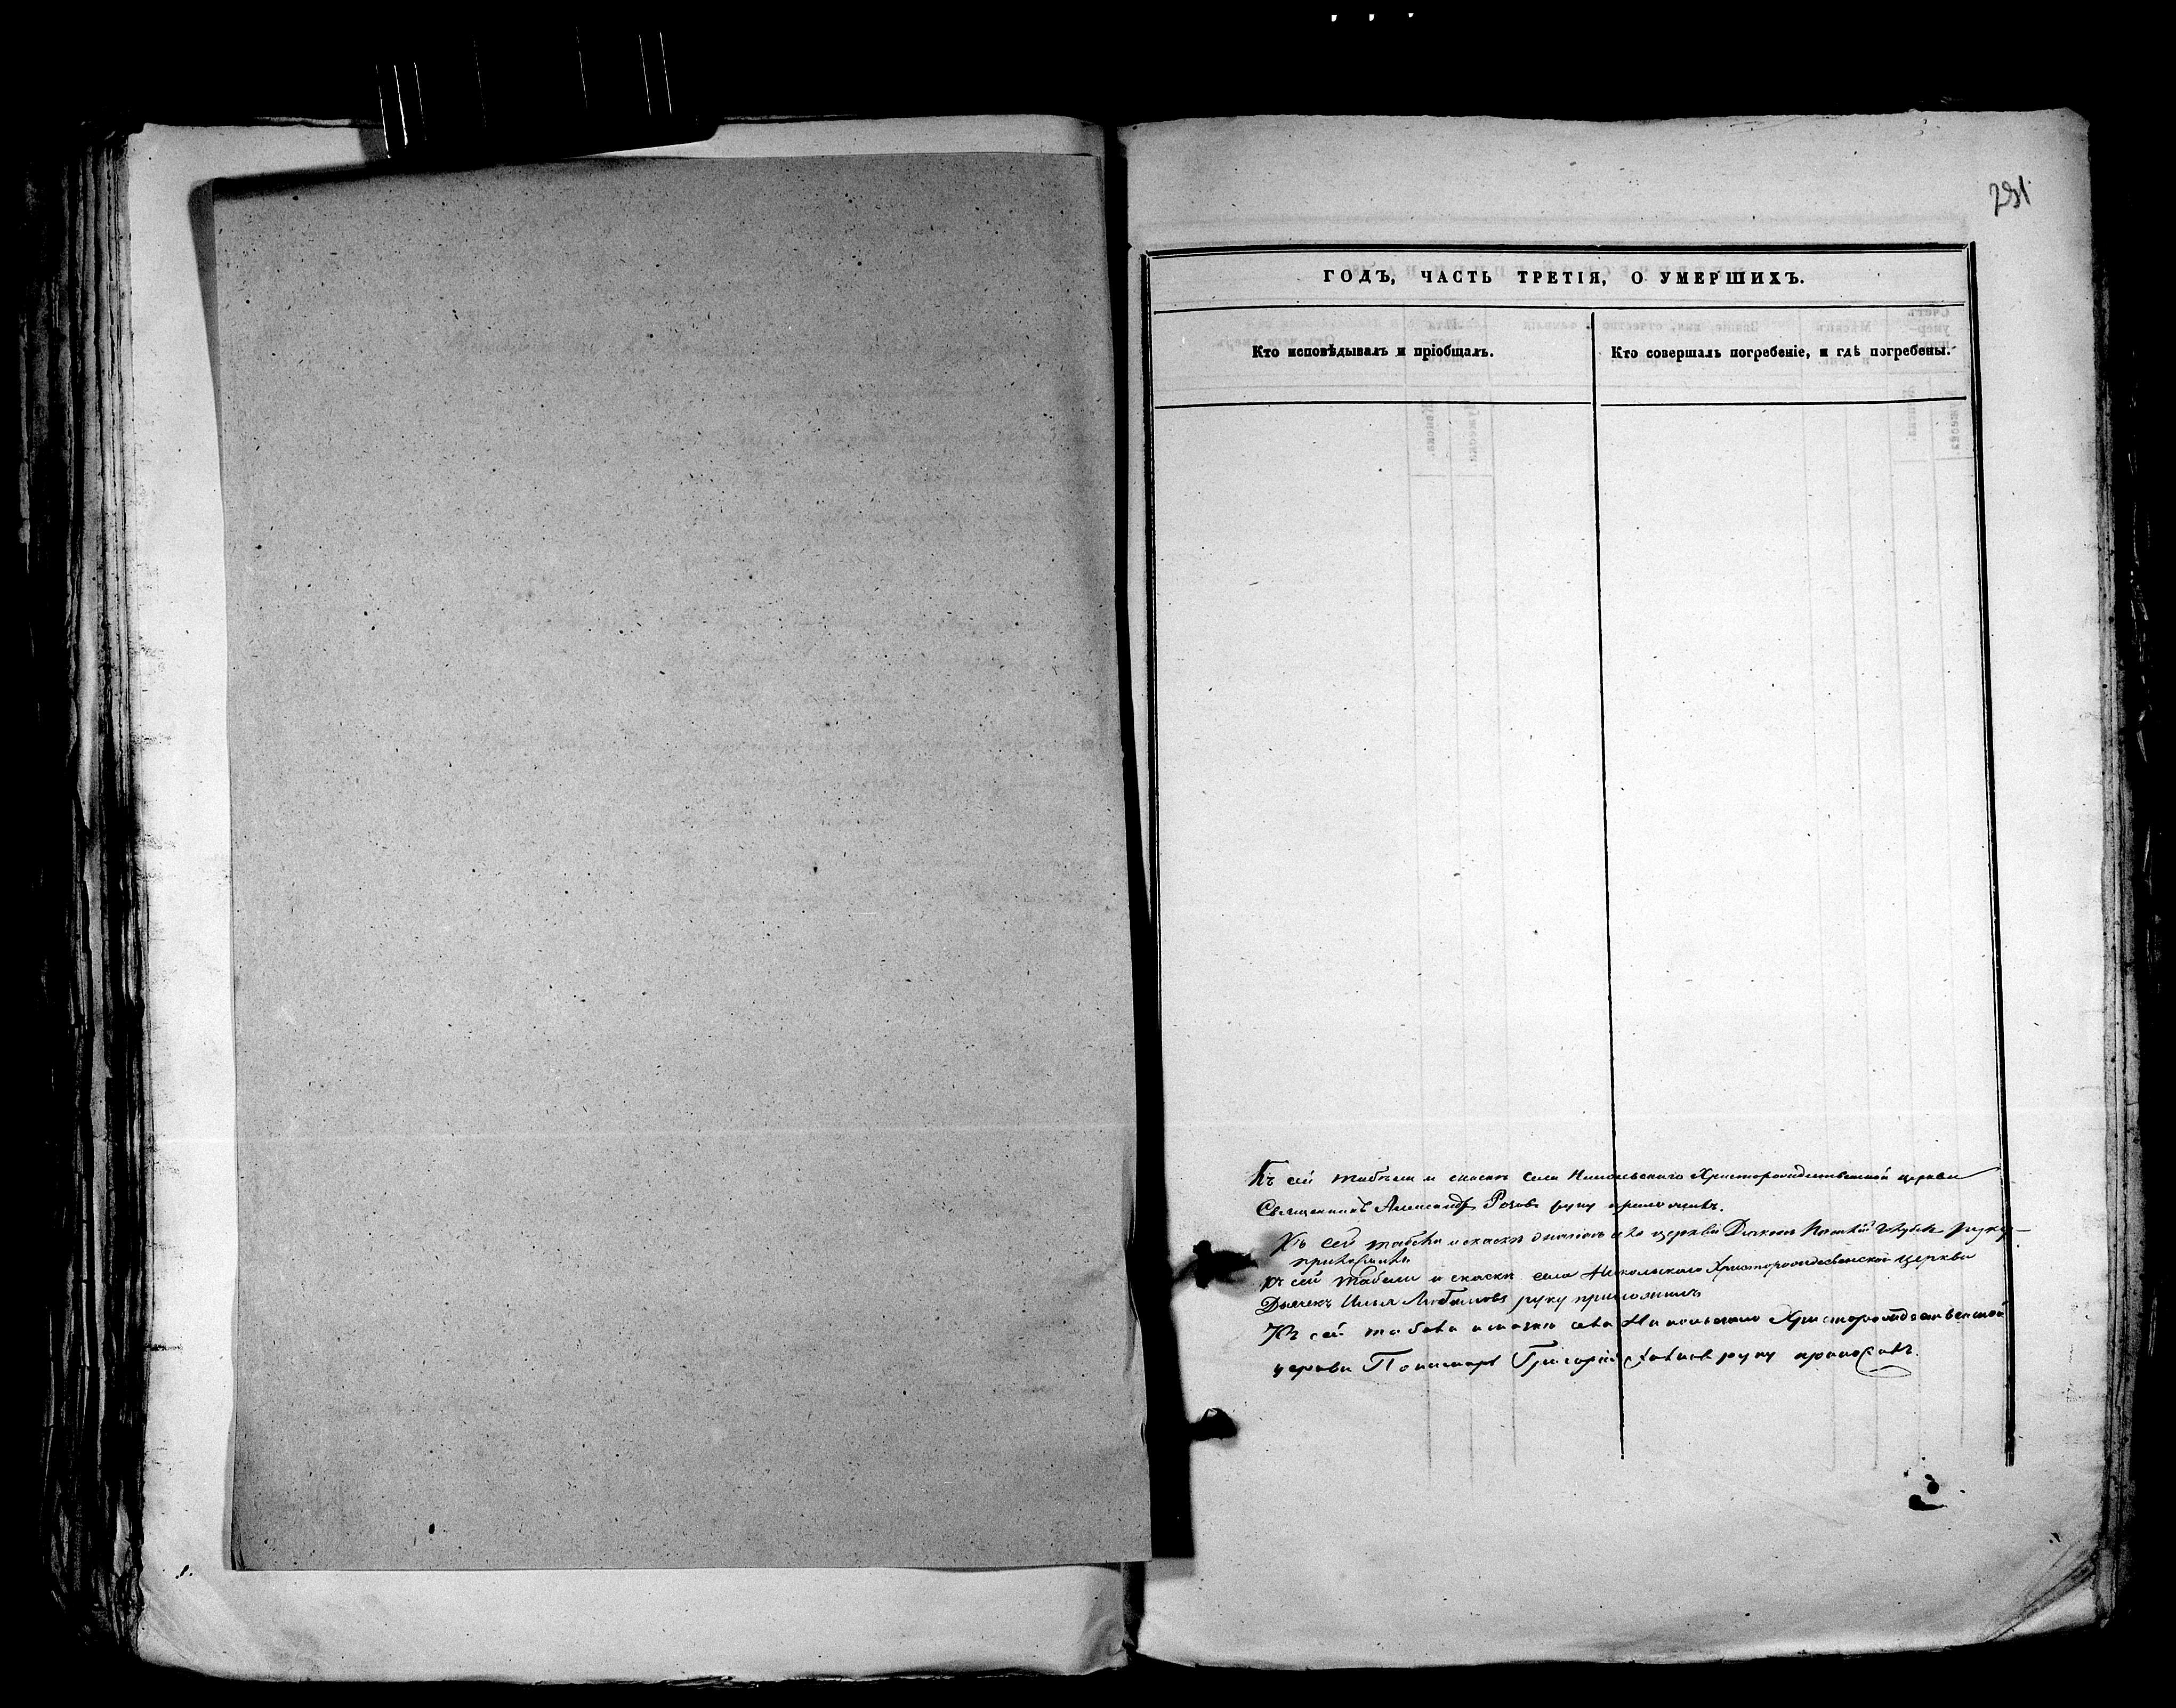 291
ГОДЪ, ЧАСТЬ ТРЕТІЯ, О УМЕРШИХЪ.
Кто исповѣдывалъ и пріобщалъ.
Кто совершалъ погребеніе, и гдѣ погребены.
Къ сей табели и скаскѣ села Никольскаго Христорождественской церкви
Священникъ Александръ Розовъ руку приложилъ.
Къ сей табели и скаскѣ церкви Діаконъ руку
приложилъ
Къ сей табели и скаски села Никольскаго Христорождесвенской церкви
Дьячекъ Илья Любимовъ руку приложилъ
Къ сей табели села Никольскаго Христорождественской
церкви Пономарь Григорій руку приложилъ.